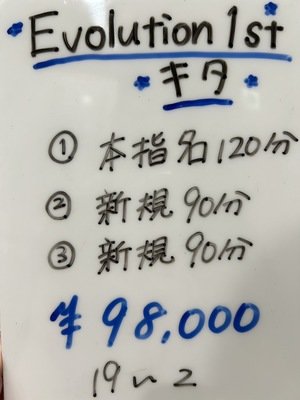 Evolution 1st
キタ
① 本指名120分
② 新規90分
③ 新規90分
¥98,000
19〜2